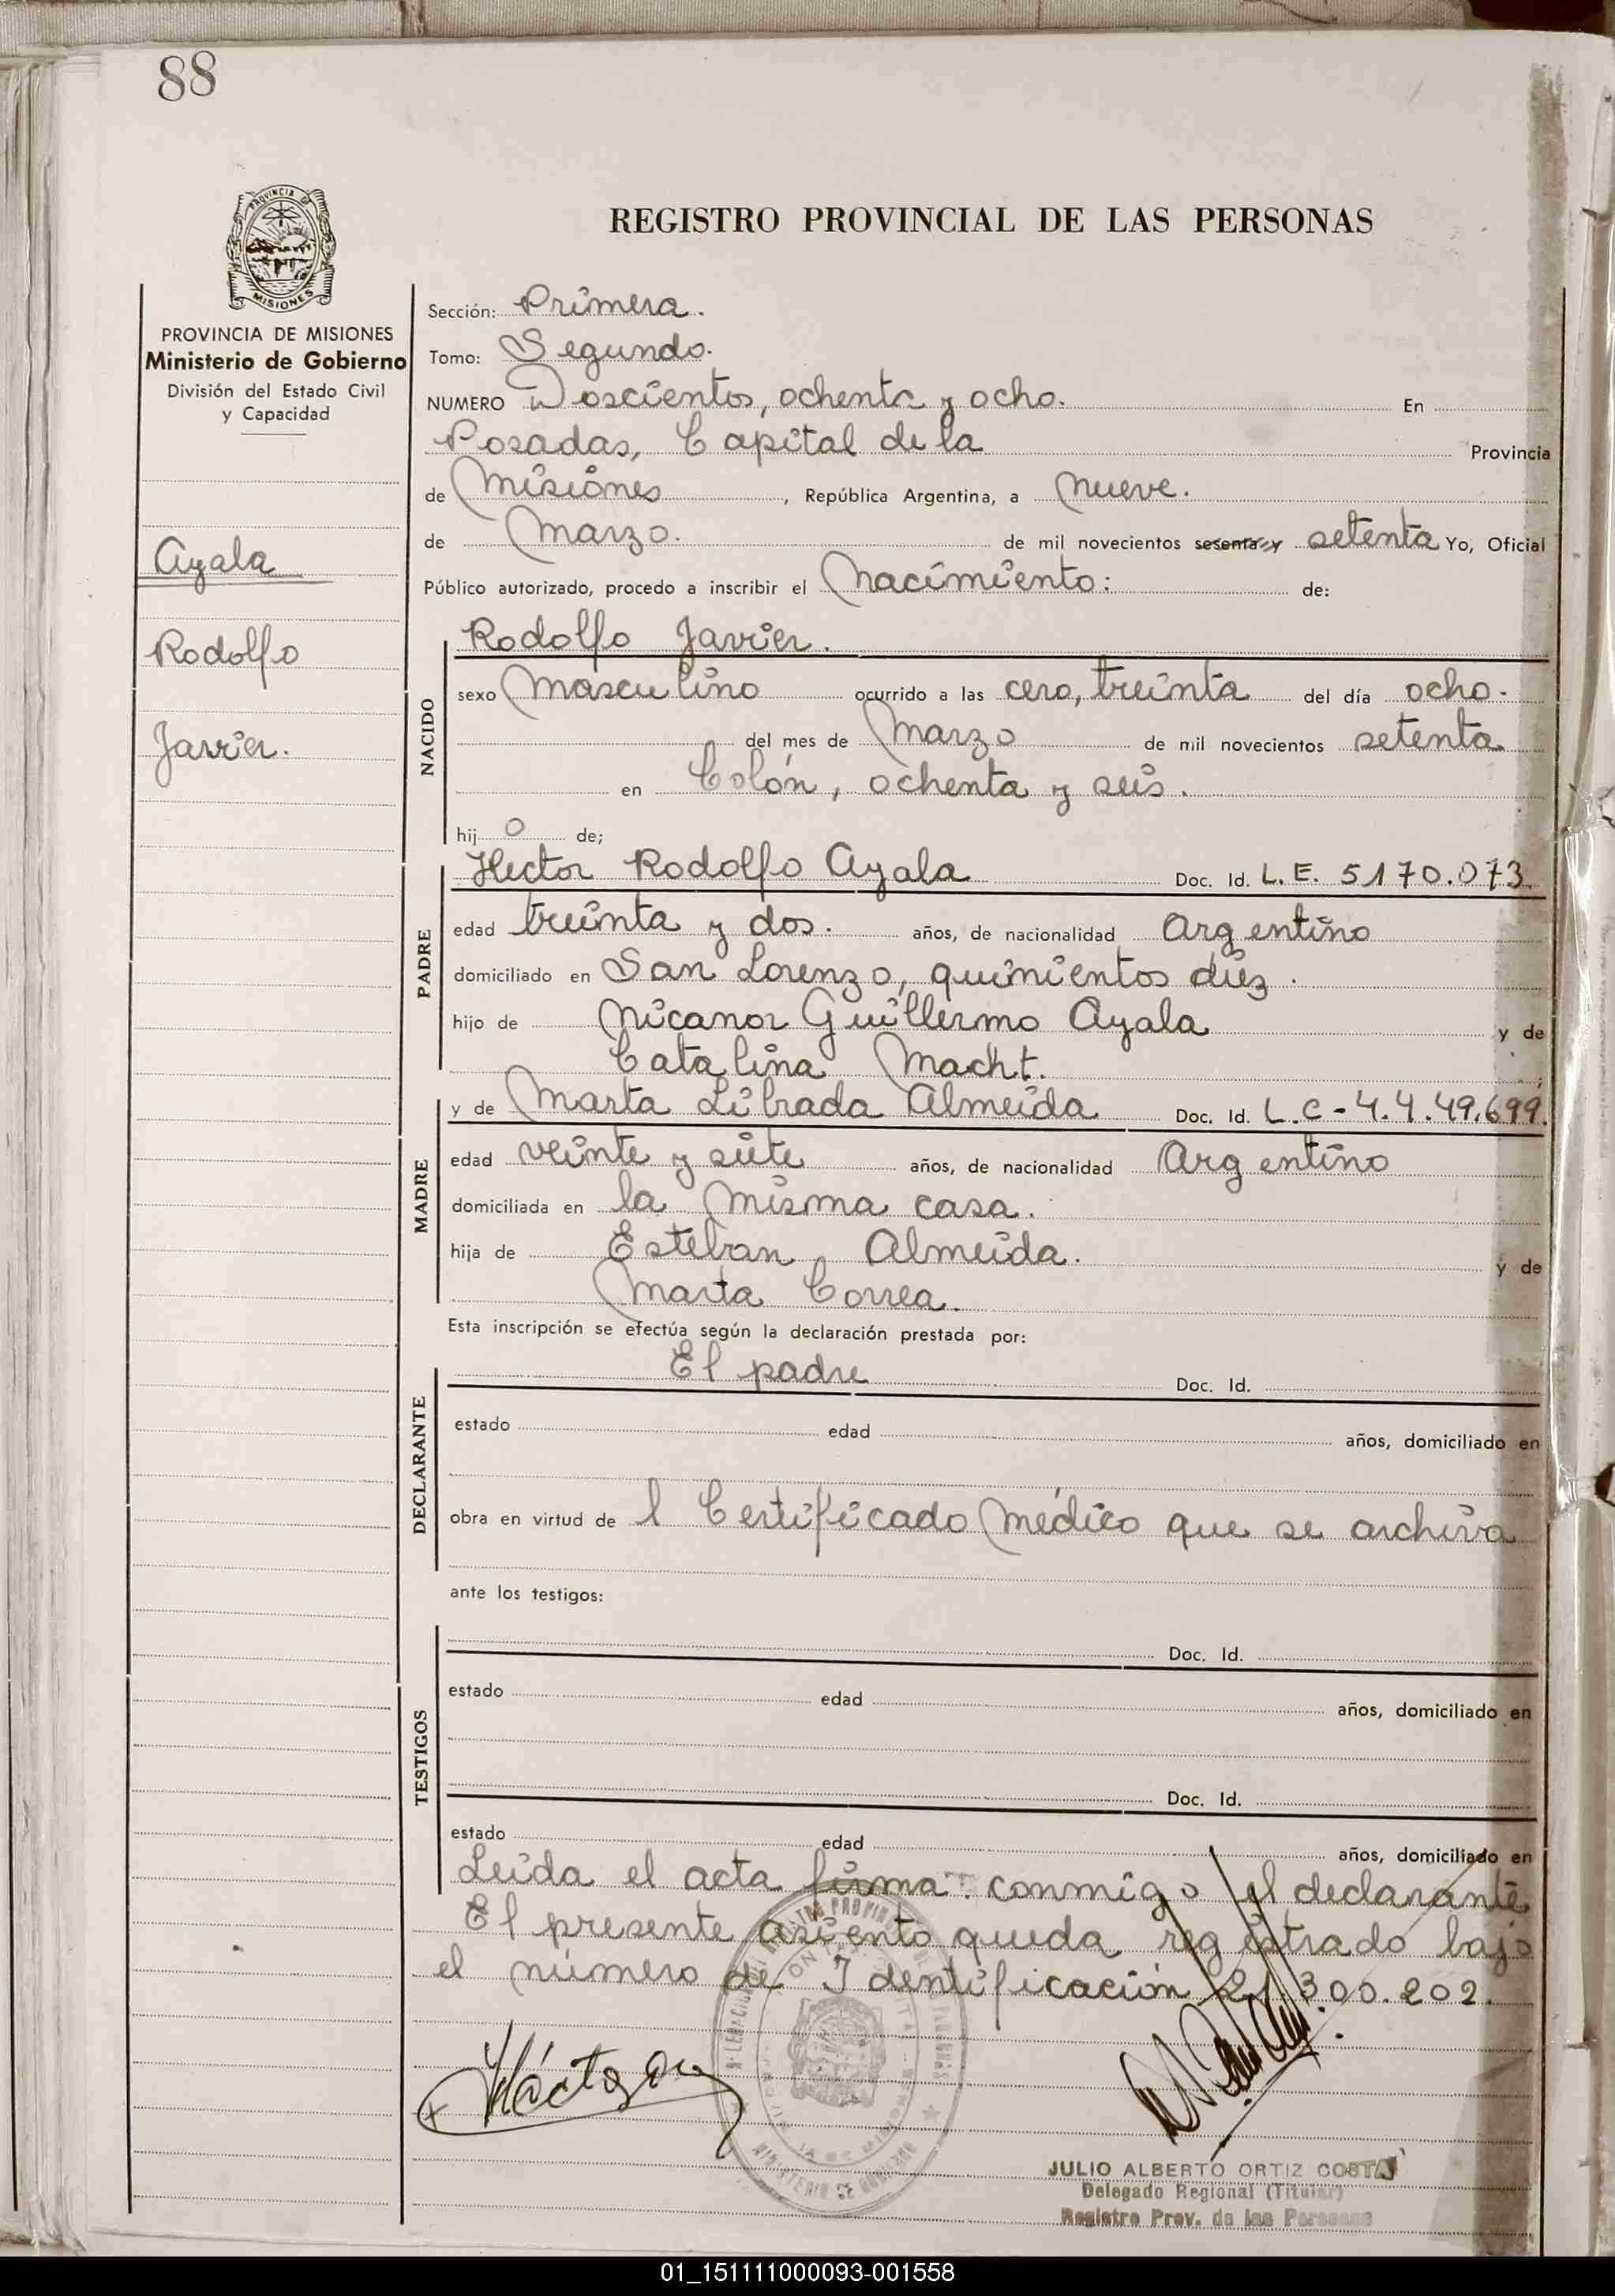 88
PROVINCIA DE
MISIONES
PROVINCIA DE MISIONES
Ministerio de Gobierno
División del Estado Civil
y Capacidad
Ayala
Rodolfo
Javier.
REGISTRO PROVINCIAL DE LAS PERSONAS
Sección: Primera.
Tomo: Segundo.
NUMERO Doscientos, ochenta y ocho. En
Posadas, Capital de la Provincia
de Misiones, República Argentina, a nueve.
de Marzo. de mil novecientos sesenta y setenta Yo, Oficial
Público autorizado, procedo a inscribir el Nacimiento: de:
NACIDO
Rodolfo Javier.
sexo Masculino ocurrido a las cero, treinta del día ocho.
del mes de Marzo de mil novecientos setenta
en Colón, ochenta y seis.
hij o de;
PADRE
Hector Rodolfo Ayala Doc. Id. L.E. 5170.073.
edad treinta y dos. años, de nacionalidad Argentino
domiciliado en San Lorenzo, quinientos diez.
hijo de Nicanor Guillermo Ayala y de
Catalina Macht. ;
MADRE
y de Marta Librada Almeida Doc. Id. L.C-4.4.49.699.
edad veinte y siete años, de nacionalidad Argentino
domiciliada en la misma casa.
hija de Esteban Almeida. y de
Marta Correa.
Esta inscripción se efectúa según la declaración prestada por:
DECLARANTE
El padre Doc. Id.
estado edad años, domiciliado en
obra en virtud de l Certificado Médico que se archiva
ante los testigos:
TESTIGOS
Doc. Id.
estado edad años, domiciliado en
Doc. Id.
estado edad años, domiciliado en
Leida el acta firma conmigo el declarante
El presente asiento queda registrado bajo
el número de Identificación 21.300.202.
JULIO ALBERTO ORTIZ COSTA
Delegado Regional (Titular)
Registro Prov. de las Personas
01_151111000093-001558